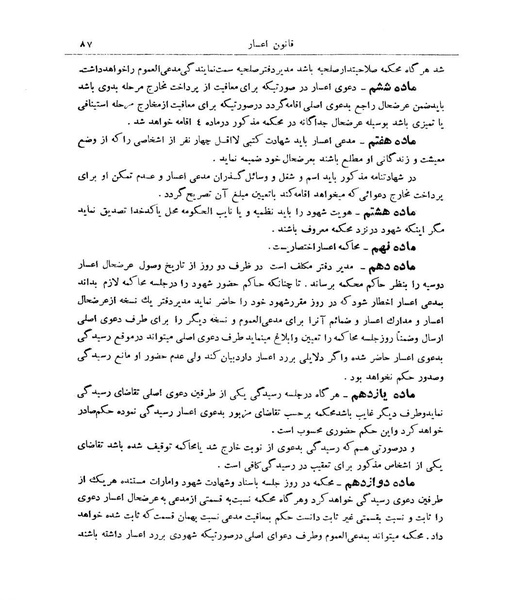 قانون اعسار ۸۷
شد هر گاه محکمه صلاحیتدار صلحیه باشد مدیر دفتر صلحیه سمت نمایندگی مدعی العموم را خواهد داشت.
ماده ششم – مدعی اعسار در صورتیکه برای معافیت از پرداخت مخارج مرحله بدوی باشد
باید ضمن عرضحال راجع بدعوی اصلی اقامه گردد در صورتیکه برای معافیت از مخارج مرحله استینافی
یا تمیزی باشد بوسیله عرضحال جداگانه در محکمه مذکور در ماده ٤ اقامه خواهد شد .
ماده هفتم – مدعی اعسار باید شهادت کتبی لااقل چهار نفر از اشخاصی را که از وضع
معیشت و زندگانی او مطلع باشند بعرضحال خود ضمیمه نماید .
در شهادتنامه مذکور باید اسم و شغل و وسائل گذران مدعی اعسار و عدم تمکن او برای
پرداخت مخارج دعوائی که میخواهد اقامه کند با تعیین مبلغ آن تصریح گردد .
ماده هشتم – هویت شهود را باید نظمیه و یا نایب الحکومه محل یا کدخدا تصدیق نماید
مگر اینکه شهود در نزد محکمه معروف باشند .
ماده نهم – محاکمه اعسار اختصاریست .
ماده دهم – مدیر دفتر مکلف است در ظرف دو روز از تاریخ وصول عرضحال اعسار
دوسیه را بنظر حاکم محکمه برساند . تا چنانکه حاکم حضور شهود را در جلسه محاکمه لازم بداند
بمدعی اعسار اخطار شود که در روز مقرر شهود خود را حاضر نماید مدیر دفتر یك نسخه از عرضحال
اعسار و مدارك اعسار و ضمائم آنرا برای مدعی العموم و نسخه دیگر را برای طرف دعوی اصلی
ارسال و ضمناً روز جلسه محاکمه را تعیین و ابلاغ مینماید طرف دعوی اصلی میتواند در موقع رسیدگی
بدعوی اعسار حاضر شده و اگر دلایلی برد اعسار دارد بیان کند ولی عدم حضور او مانع رسیدگی
و صدور حکم نخواهد بود .
ماده یازدهم – هر گاه در جلسه رسیدگی یکی از طرفین دعوی اصلی تقاضای رسیدگی
نماید و طرف دیگر غایب باشد محکمه بر حسب تقاضای مزبور بدعوی اعسار رسیدگی نموده حکم صادر
خواهد کرد و این حکم حضوری محسوب است .
و در صورتی هم که رسیدگی بدعوی از نوبت خارج شد یا محاکمه توقیف شده باشد تقاضای
یکی از اشخاص مذکور برای تعقیب در رسیدگی کافی است .
ماده دوازدهم – محکمه در روز جلسه باسناد و شهادت شهود و امارات مستنده هر یك از
طرفین دعوی رسیدگی خواهد کرد و هر گاه محکمه نسبت به قسمتی از مدعی به عرضحال اعسار دعوی
را ثابت و نسبت بقسمتی غیر ثابت دانست حکم بمعافیت مدعی نسبت بهمان قسمت که ثابت شده خواهد
داد . محکمه میتواند بمدعی العموم و طرف دعوای اصلی در صورتیکه شهودی برد اعسار داشته باشند